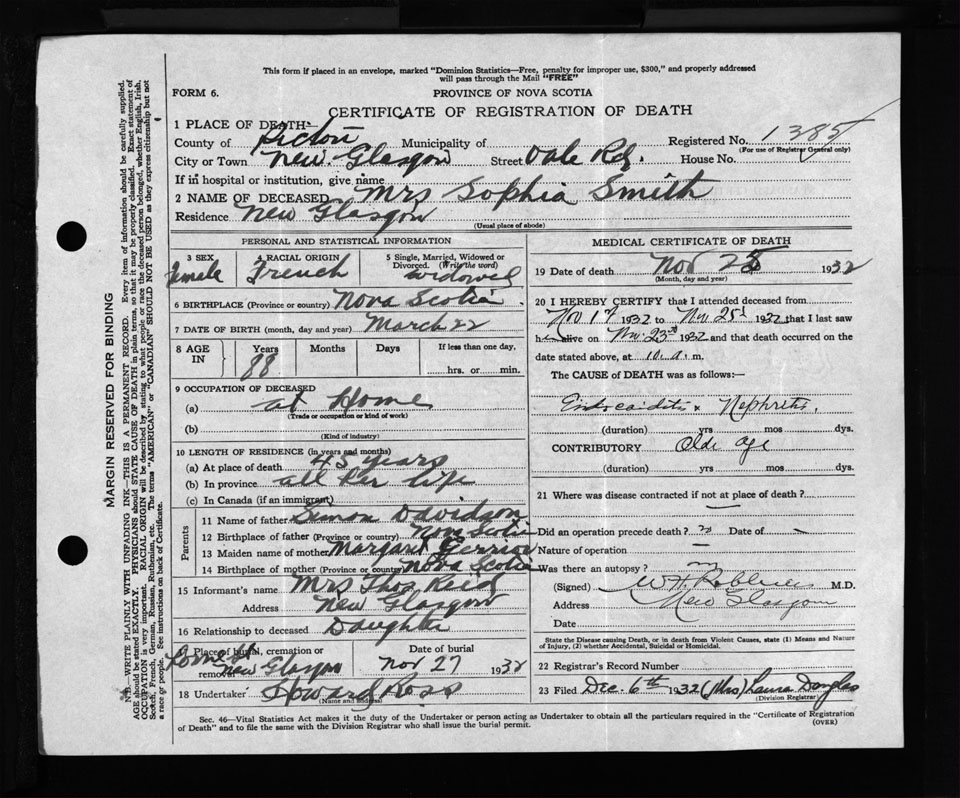 This form if placed in an envelope, marked "Dominion Statistics—Free, penalty for improper use, $300," and properly addressed
will pass through the Mail "FREE"
FORM 6.
PROVINCE OF NOVA SCOTIA
CERTIFICATE OF REGISTRATION OF DEATH
1 PLACE OF DEATH—
County of Pictou Municipality of Registered No. 1385
(For use of Registrar General only)
City or Town New Glasgow Street Dale Rd. House No.
If in hospital or institution, give name
2 NAME OF DECEASED Mrs Sophia Smith
Residence New Glasgow
(Usual place of abode)
PERSONAL AND STATISTICAL INFORMATION
3 SEX 4 RACIAL ORIGIN 5 Single, Married, Widowed or
Divorced. (Write the word)
female French widowed
6 BIRTHPLACE (Province or country) Nova Scotia.
7 DATE OF BIRTH (month, day and year) March 22
8 AGE IN Years Months Days If less than one day,
88 hrs. or min.
9 OCCUPATION OF DECEASED
(a) at Home
(Trade or occupation or kind of work)
(b)
(Kind of industry)
10 LENGTH OF RESIDENCE (in years and months)
(a) At place of death 45 years
(b) In province all her life
(c) In Canada (if an immigrant)
Parents
11 Name of father Simon Davidson
12 Birthplace of father (Province or country) Nova Scotia
13 Maiden name of mother Margaret
14 Birthplace of mother (Province or country) Nova Scotia
15 Informant's name Mrs Thos Reid
Address New Glasgow
16 Relationship to deceased Daughter
17 Place of burial, cremation or removal Date of burial
Lorne St New Glasgow Nov 27 1932
18 Undertaker Howard Ross
(Name and address)
MEDICAL CERTIFICATE OF DEATH
19 Date of death Nov 25 1932
(Month, day and year)
20 I HEREBY CERTIFY that I attended deceased from
Nov 1st 1932 to Nov. 25th 1932 that I last saw
h alive on Nov 23rd 1932 and that death occurred on the
date stated above, at 10. a. m.
The CAUSE of DEATH was as follows:—
Endocarditis & Nephritis.
(duration) yrs mos dys.
CONTRIBUTORY Old Age
(duration) yrs mos dys.
21 Where was disease contracted if not at place of death?
—
Did an operation precede death? no Date of —
Nature of operation —
Was there an autopsy? no
(Signed) W H M.D.
Address New Glasgow
Date
State the Disease causing Death, or in death from Violent Causes, state (1) Means and Nature
of Injury, (2) whether Accidental, Suicidal or Homicidal.
22 Registrar's Record Number
23 Filed Dec. 6th 1932 (Mrs) Laura Douglas
(Division Registrar)
Sec. 46—Vital Statistics Act makes it the duty of the Undertaker or person acting as Undertaker to obtain all the particulars required in the "Certificate of Registration
of Death" and to file the same with the Division Registrar who shall issue the burial permit.
(OVER)
MARGIN RESERVED FOR BINDING
N.B.—WRITE PLAINLY WITH UNFADING INK—THIS IS A PERMANENT RECORD. Every item of information should be carefully supplied.
AGE should be stated EXACTLY. PHYSICIANS should STATE CAUSE OF DEATH in plain terms, so that it may be properly classified. Exact statement of
OCCUPATION is very important. RACIAL ORIGIN will be described by stating to what people or race the deceased person belonged, whether English, Irish,
Scotch, French, German, Russian, Ruthenian, etc. The terms "AMERICAN" or "CANADIAN" SHOULD NOT BE USED as they express citizenship but not
a race or people. See instructions on back of Certificate.